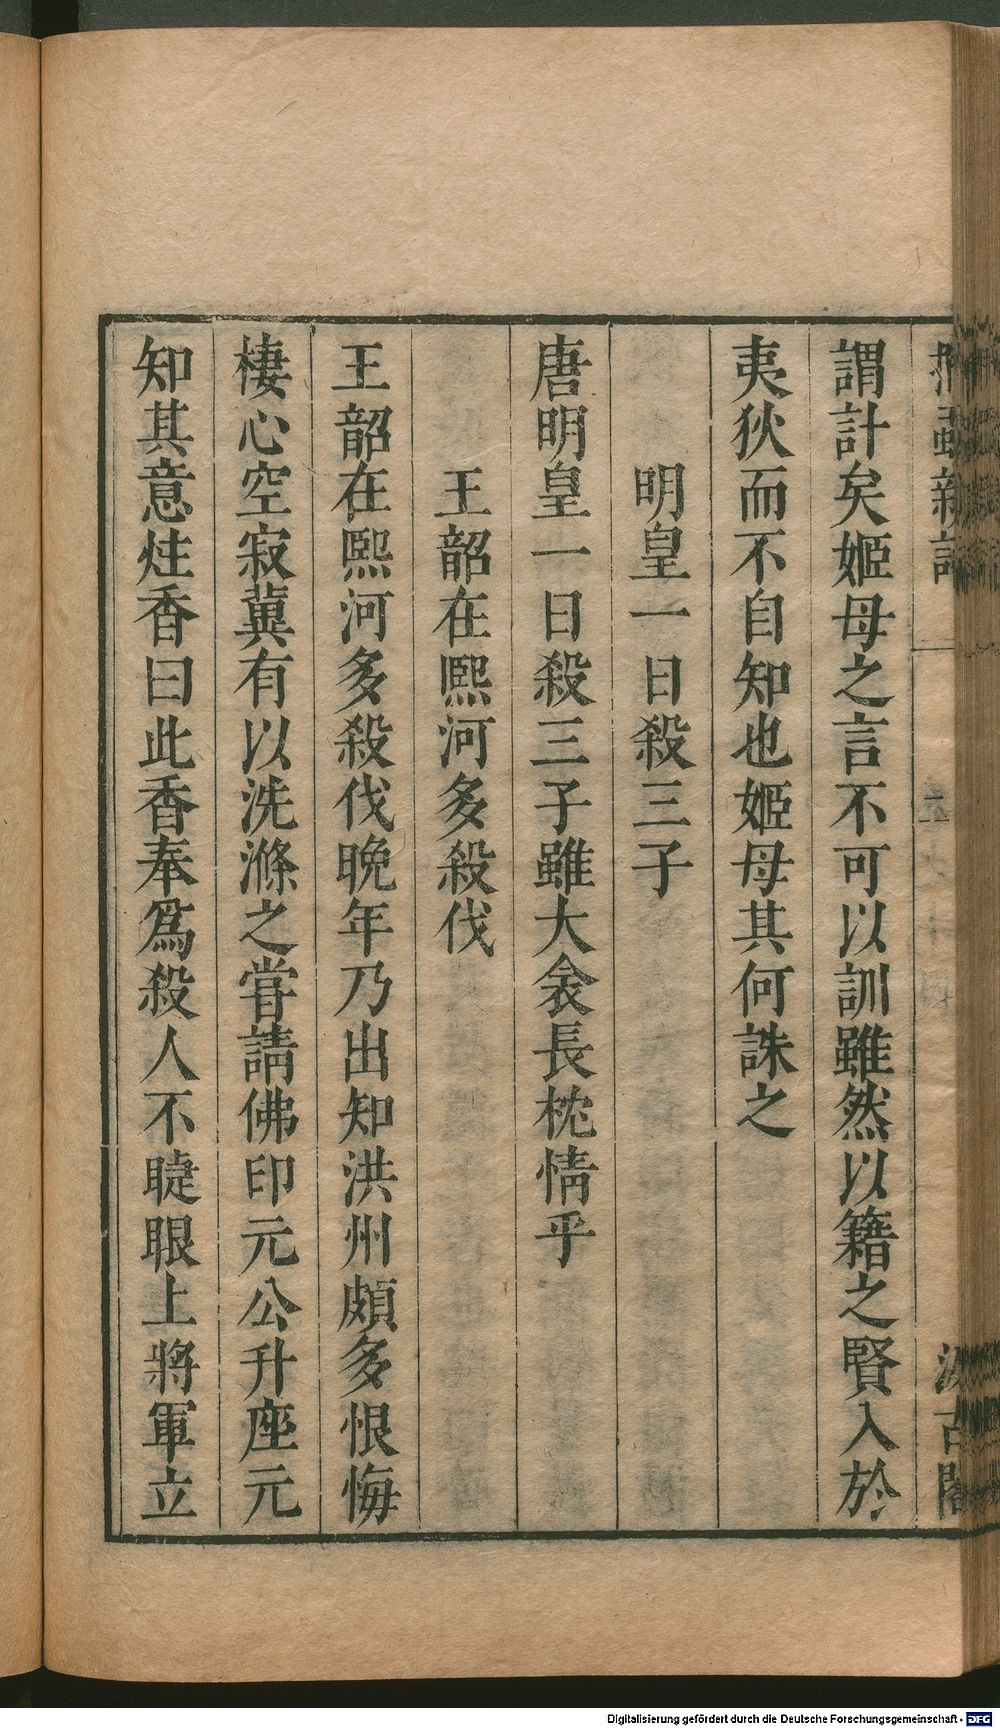 捫蝨新話
汲古閣
謂計矣姬母之言不可以訓雖然以籍之賢入於
夷狄而不自知也姬母其何誅之
明皇一日殺三子
唐明皇一日殺三子雖大衾長枕情乎
王韶在熙河多殺伐
王韶在熙河多殺伐晚年乃出知洪州頗多恨悔
棲心空寂冀有以洗滌之嘗請佛印元公升座元
知其意炷香曰此香奉爲殺人不睫眼上將軍立
Digitalisierung gefördert durch die Deutsche Forschungsgemeinschaft - DFG